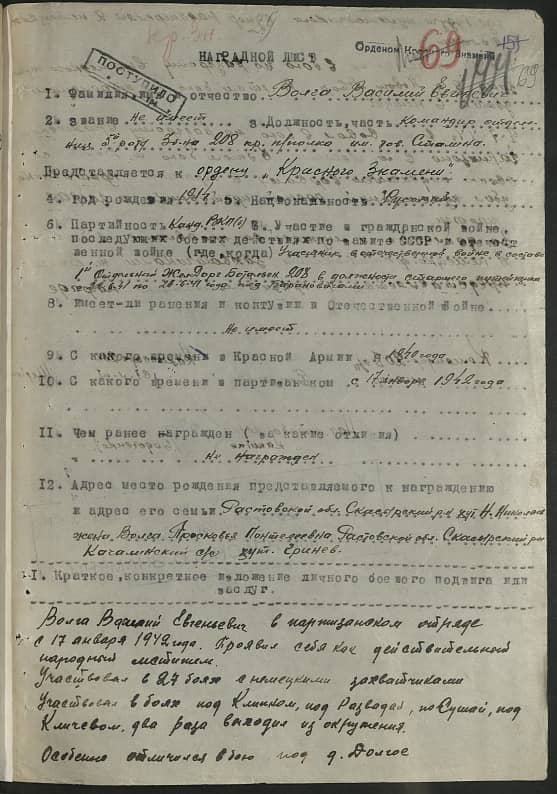 69
НАГРАДНОЙ ЛИСТ
Орденом Красного Знамени
ПОСТУПИЛО
1. Фамилия, имя отчество Волга Василий Евгеньев
2. Звание Не имеет 3. Должность, часть Командир отделе-
ния 5ой роты 3 б-на 208 пр. п/полка им. тов. Сталина.
Представляется к ордену „Красного Знамени"
4. Год рождения 1914 5. Национальность Русский
6. Партийность Канд. ВКП(б) Участие в гражданской войне,
последующих боевых действиях по защите СССР и отечест
венной войне (где, когда) Участник отечественной войны в составе
1й Отдельный Жел Дорг Батальон 208 в должности старшего
8. Имеет-ли ранения и контузии в Отечественной Войне
Не имеет
9. С какого времени в Красной Армии с 1940 года
10. С какого времени в партизанском с 17 января 1942 года
11. Чем ранее награжден (за какие отличия)
Не награжден
12. Адрес место рождения представляемого к награждению
и адрес его семьи Растовской обл. Скасырский р-н хут. Н. Николаев
жена Волга Просковья Пантелеевна Растовской обл. Скасырский р-н
Качалинский с/с хут. Гринев.
1. Краткое, конкретное изложение личного боевого подвига или
заслуг.
Волга Василий Евгеньевич в партизанском отряде
с 17 января 1942 года. Проявил себя как действительный
народный мститель.
Участвовал в 27 боях с немецкими захватчиками
Участвовал в боях под Клинком, под Развадай, по Сушай, под
Кличевом, два раза выходил из окружения.
Особенно отличился в бою под д. Долгое